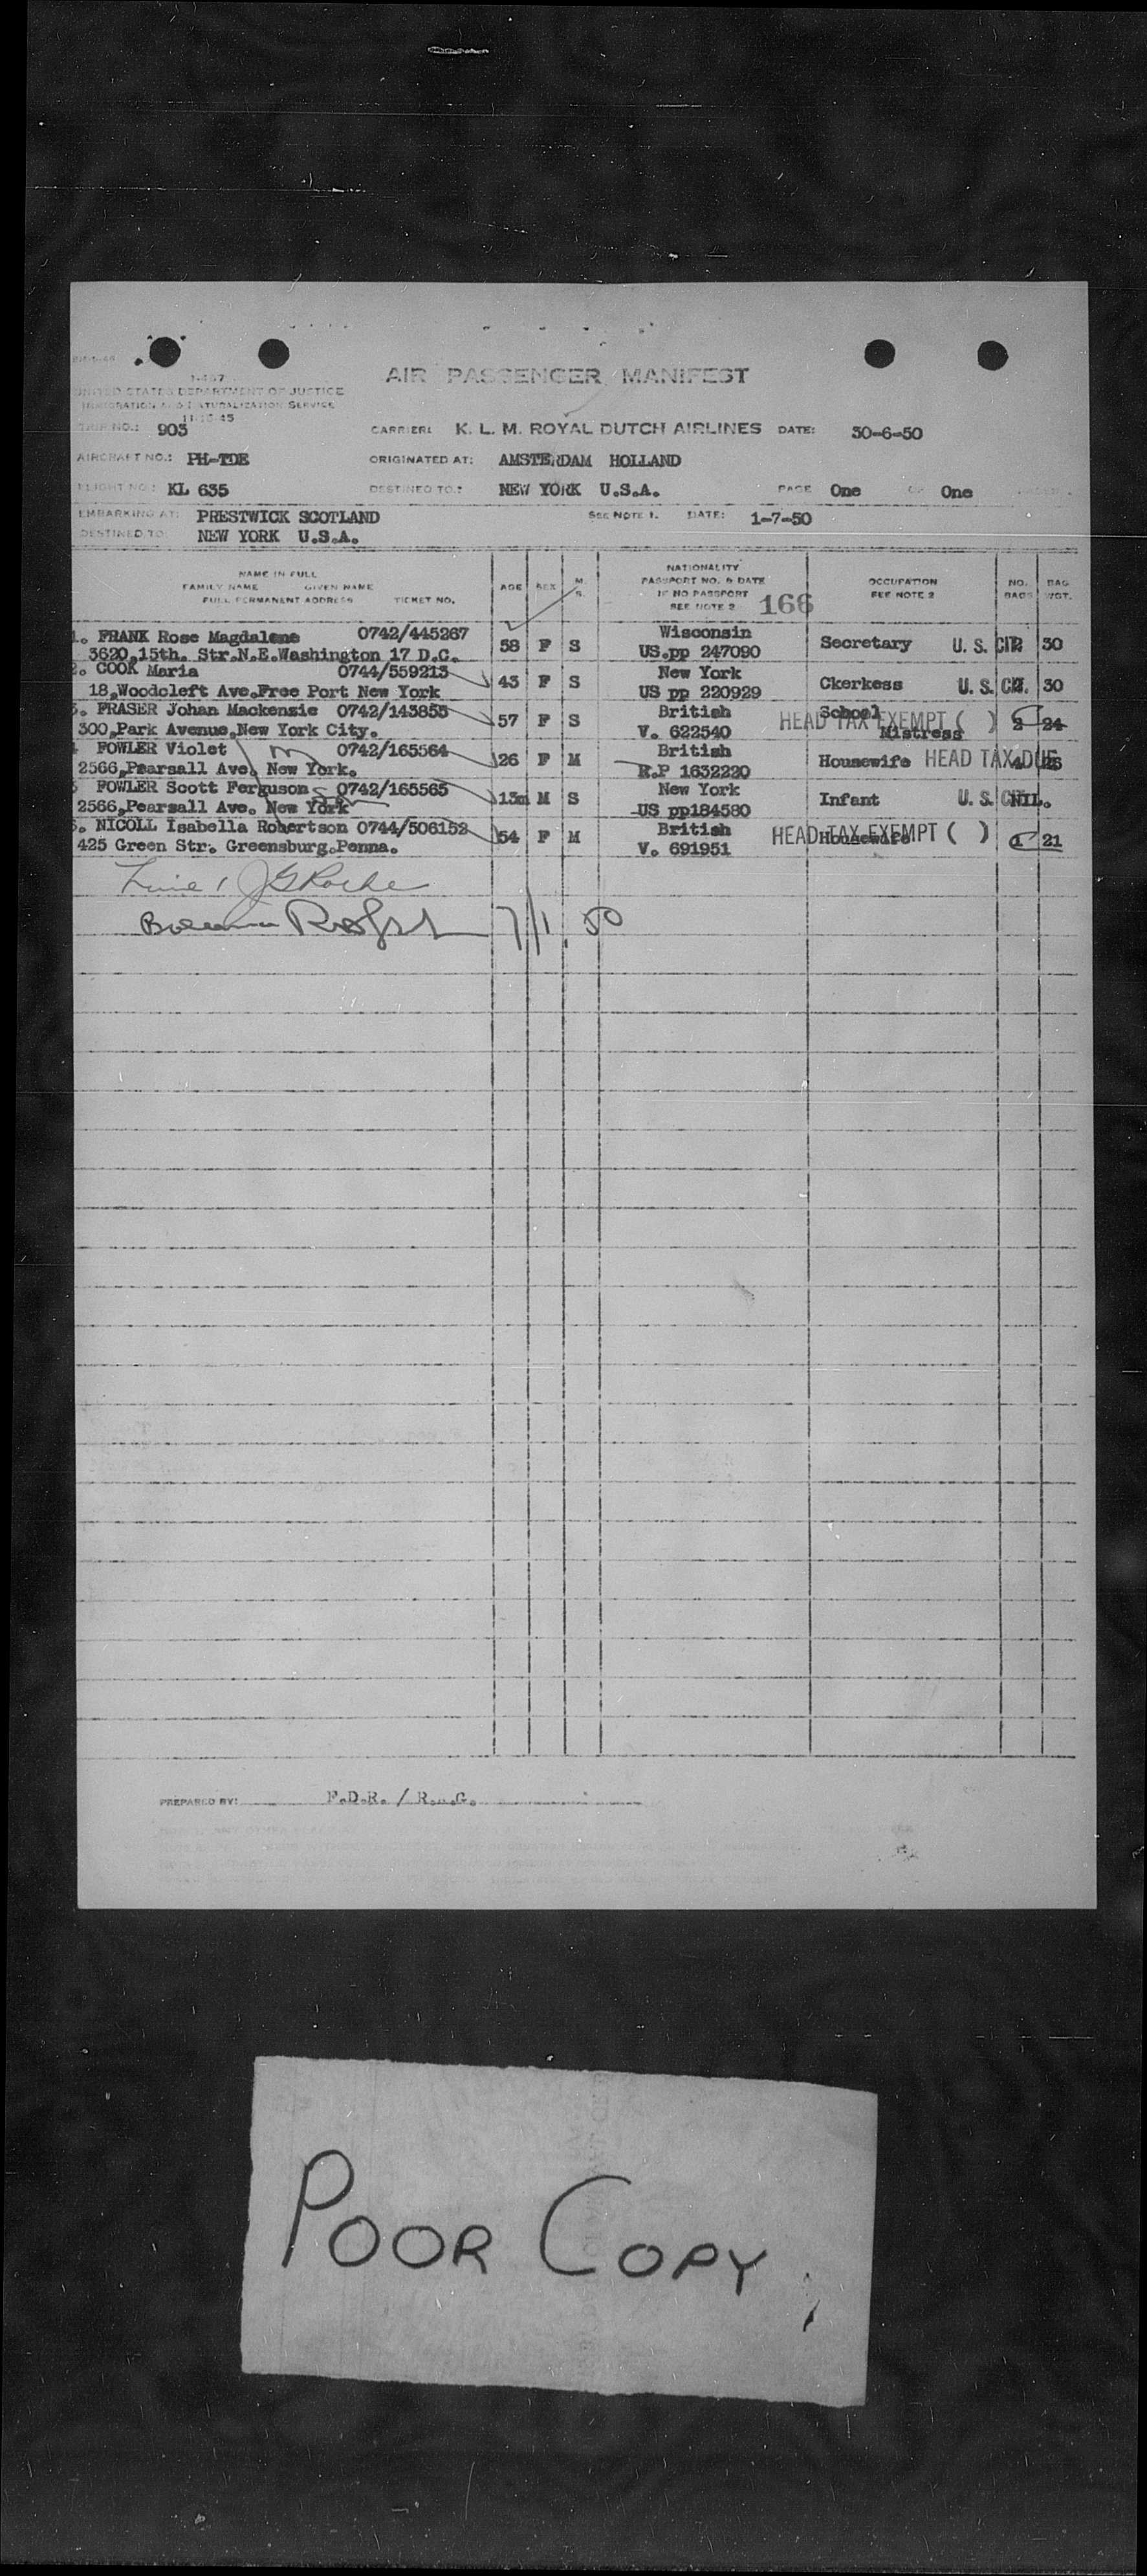 1-467
UNITED STATES DEPARTMENT OF JUSTICE
IMMIGRATION AND NATURALIZATION SERVICE
11-15-45
AIR PASSENGER MANIFEST
TRIP NO.: 903 CARRIER: K. L. M. ROYAL DUTCH AIRLINES DATE: 30-6-50
AIRCRAFT NO.: PH-TDE ORIGINATED AT: AMSTERDAM HOLLAND
FLIGHT NO.: KL 635 DESTINED TO.: NEW YORK U.S.A. PAGE One OF One
EMBARKING AT: PRESTWICK SCOTLAND SEE NOTE 1. DATE: 1-7-50
DESTINED TO NEW YORK U.S.A.
NAME IN FULL
FAMILY NAME GIVEN NAME
FULL PERMANENT ADDRESS TICKET NO.
AGE SEX M. S.
NATIONALITY
PASSPORT NO. & DATE
IF NO PASSPORT
SEE NOTE 2 166
OCCUPATION
SEE NOTE 2
NO. BAGS
BAG WGT.
1. FRANK Rose Magdalene 0742/445267 58 F S Wisconsin Secretary U. S. CIT. 2 30
3620,15th. Str.N.E.Washington 17 D.C. US.pp 247090
2. COOK Maria 0744/559213 43 F S New York Ckerkess U. S. CIT. 30
18,Woodcleft Ave.Free Port New York US pp 220929
3. FRASER Johan Mackenzie 0742/143855 57 F S British School Mistress HEAD TAX EXEMPT ( ) 2 24
300,Park Avenue,New York City. V. 622540
4 FOWLER Violet 0742/165564 26 F M British Housewife HEAD TAX DUE
2566,Pearsall Ave. New York. R.P 1632220
5 FOWLER Scott Ferguson 0742/165565 13m M S New York Infant U. S. CIT. NIL.
2566,Pearsall Ave. New York US pp184580
6. NICOLL Isabella Robertson 0744/506152 54 F M British Housewife HEAD TAX EXEMPT ( ) 1 21
425 Green Str. Greensburg.Penna. V. 691951
Line 1
7/1.50
PREPARED BY: F.D.R. / R.
POOR COPY